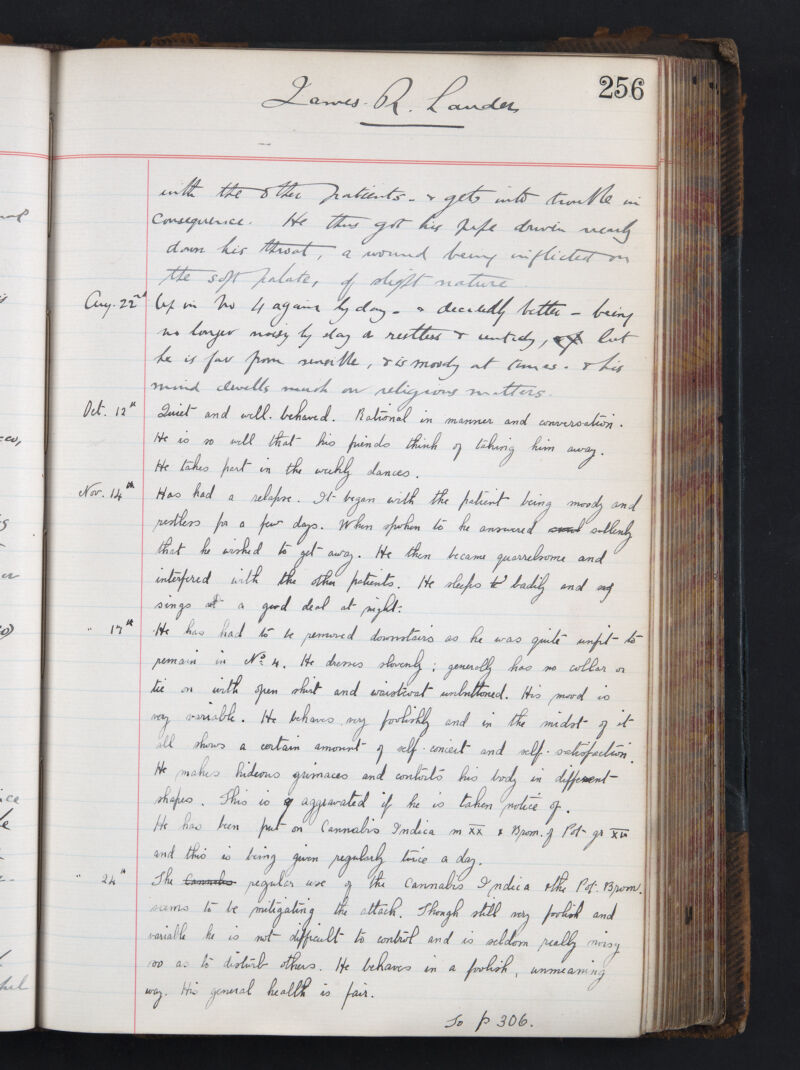 256
James. R. Lauder
with the other patients - & gets into trouble in
consequence. He thus got his pipe driven nearly
down his throat, a wound being inflicted on
the soft palate, of slight nature.
Aug. 22nd Up in No 4 again by day - & decidedly better - being
no longer noisy by day or restless & untidy, but
he is far from sensible, & is moody at times. & his
mind dwells much on religious matters.
Oct. 12th Quiet and well-behaved. Rational in manner and conversation.
He is so well that his friends think of taking him away.
He takes part in the weekly dances.
Nov. 14th Has had a relapse. It began with the patient being moody and
restless for a few days. When spoken to he answered and sullenly
that he wished to get away. He then became quarrelsome and
interfered with the other patients. He sleeps badily and
sings at a good deal at night:
" 17th He has had to be removed downstairs as he was quite unfit to
remain in No. 4. He dresses slovenly; generally has no collar or
tie on with open shirt and waistcoat unbuttoned. His mood is
very variable. He behaves very foolishly and in the midst of it
all shows a certain amount of self-conceit and self-satisfaction.
He makes hideous grimaces and contorts his body in different
shapes. This is aggravated if he is taken notice of.
He has been put on Cannabis Indica m xx & Brom. of Pot. gr
and this is being given regularly twice a day.
" 24th The Cannabis regular use of the Cannabis Indica & the Pot. Brom.
seems to be mitigating the attack. Though still very foolish and
variable he is not difficult to control and is seldom really noisy
so as to disturb others. He behaves in a foolish, unmeaning
way. His general health is fair.
To p 306.